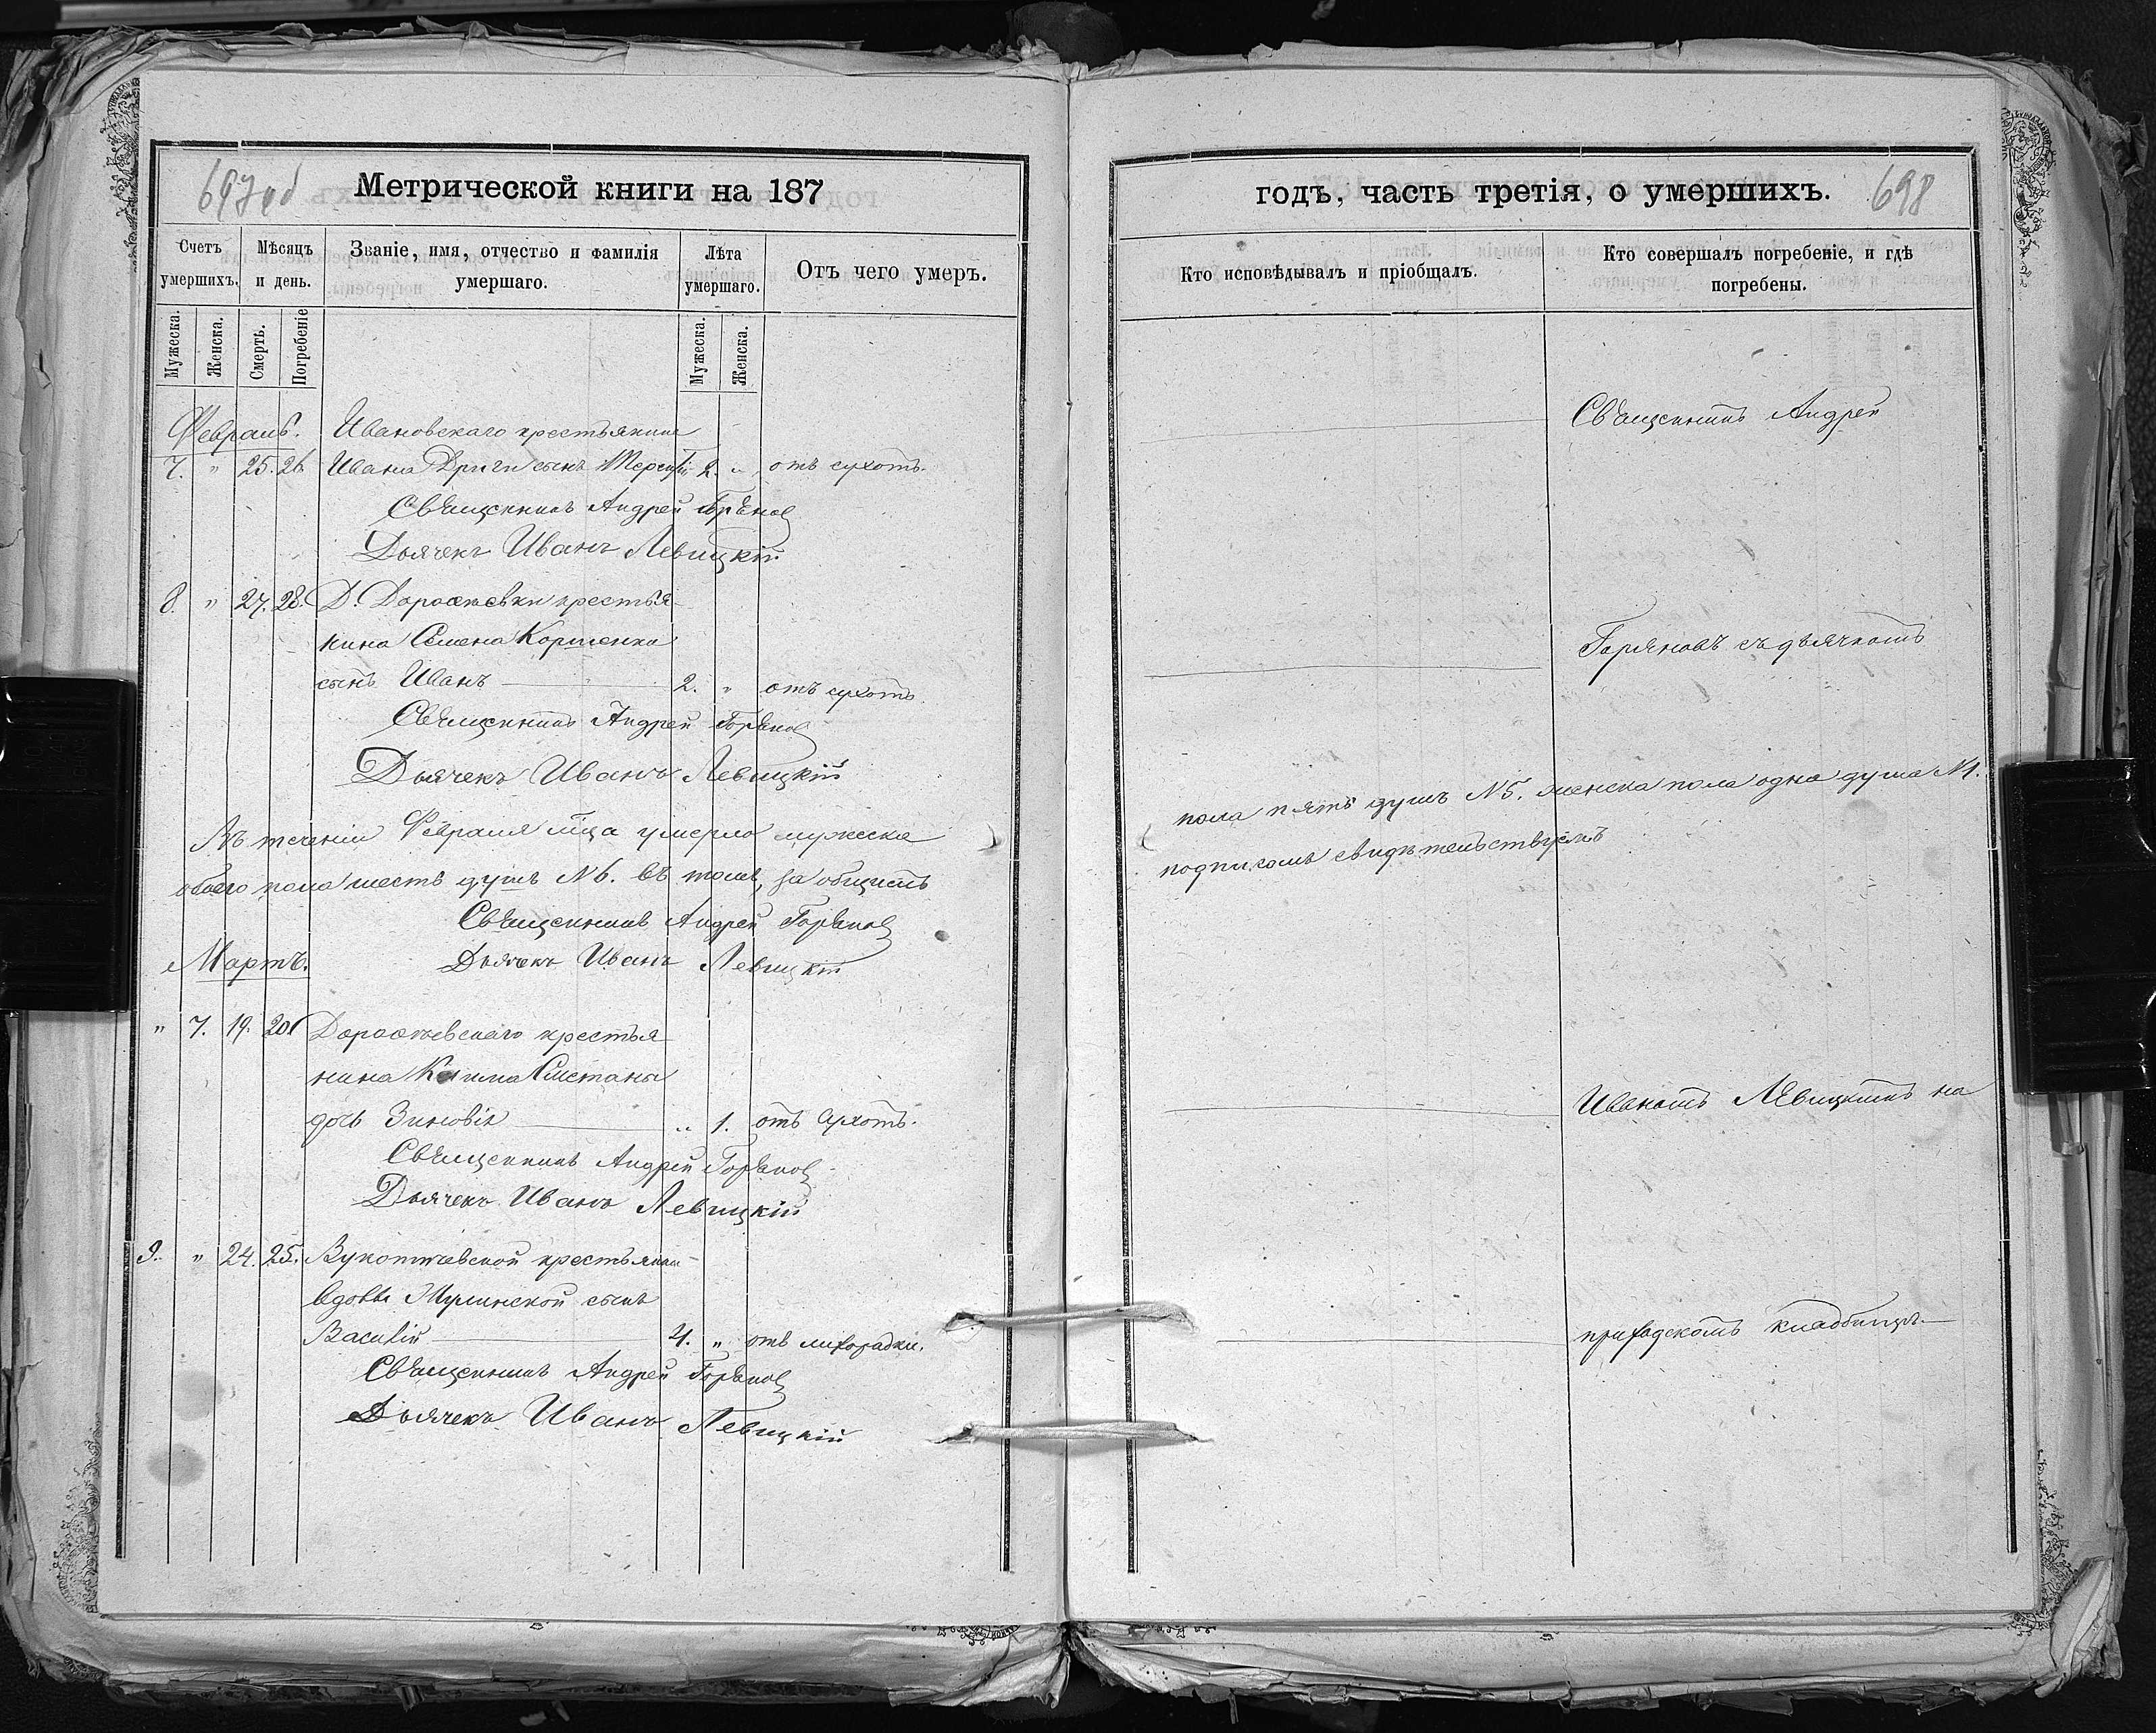 697об
Метрической книги на 187
Счетъ умершихъ.
Мѣсяцъ и день.
Званіе, имя, отчество и фамилія умершаго.
Лѣта умершаго.
Отъ чего умеръ.
Мужеска. Женска. Смерть. Погребеніе Мужеска. Женска.
Февраль. Ивановскаго крестьянина
7. " 25. 26. Ивана Дриги сынъ 2. " отъ сухотъ.
Священникъ Андрей Горяновъ
Дьячекъ Иванъ Левицкій
8. " 27. 28. Д. крестья-
нина Семена Корпienка
сынъ Иванъ 2. " отъ сухотъ
Священникъ Андрей Горяновъ
Дьячекъ Иванъ Левицкій
Въ теченіи Февраля м̃ца умерло мужеска
обоего пола шесть душъ N 6. въ томъ, за общимъ
Священникъ Андрей Горяновъ
Мартъ. Дьячекъ Иванъ Левицкій
" 7. 19. 20. крестья
нина Сметаны
дочь Зиновія " 1. отъ сухотъ.
Священникъ Андрей Горяновъ
Дьячекъ Иванъ Левицкій
9. " 24. 25. крестьянки
вдовы сынъ
Василій 4. " отъ лихорадки.
Священникъ Андрей Горяновъ
Дьячекъ Иванъ Левицкій
годъ, часть третія, о умершихъ. 698
Кто исповѣдывалъ и пріобщалъ.
Кто совершалъ погребеніе, и гдѣ погребены.
Священникъ Андрей
Горяновъ съ дьячкомъ
пола пять душъ N 5. женска пола одна душа N 1.
подписомъ свидѣтельствуемъ
Иваномъ Левицкимъ на
приходскомъ кладбищѣ.